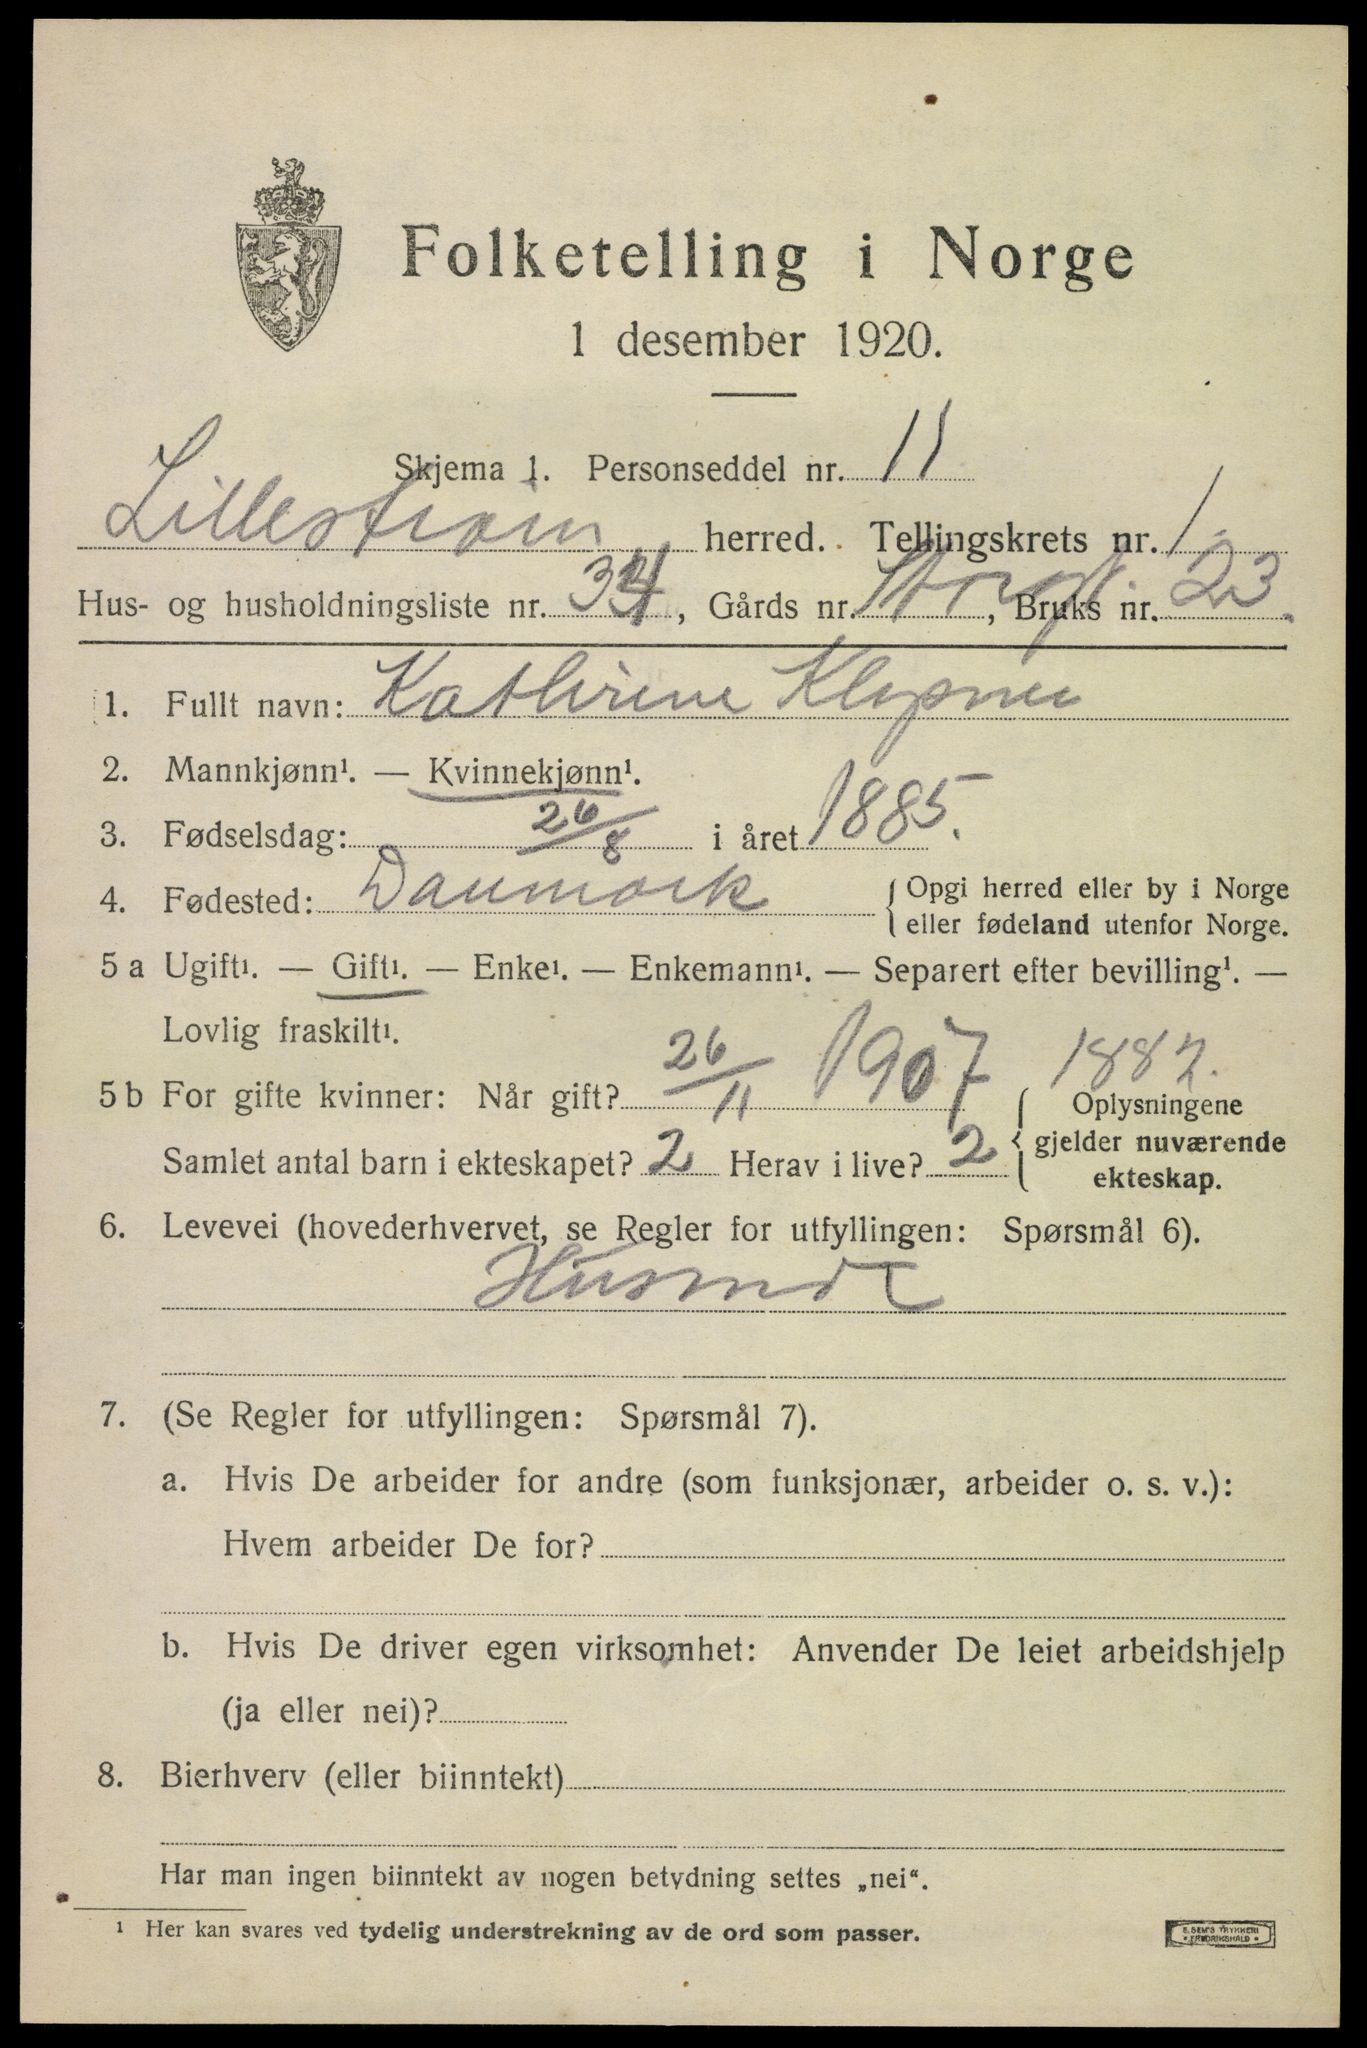 Folketelling i Norge
1 desember 1920.
Skjema 1. Personseddel nr. 11
Lillestrøm herred. Tellingskrets nr. 1
Hus- og husholdningsliste nr. 34, Gårds nr. Storgt., Bruks nr. 23.
1. Fullt navn: Kathrine
2. Mannkjønn¹. — Kvinnekjønn¹.
3. Fødselsdag: 26/8 i året 1885.
4. Fødested: Danmark { Opgi herred eller by i Norge
eller fødeland utenfor Norge.
5 a Ugift¹. — Gift¹. — Enke¹. — Enkemann¹. — Separert efter bevilling¹. —
Lovlig fraskilt¹.
5 b For gifte kvinner: Når gift? 26/11 1907 1882.
Samlet antal barn i ekteskapet? 2 Herav i live? 2
{ Oplysningene
gjelder nuværende
ekteskap.
6. Levevei (hovederhvervet, se Regler for utfyllingen: Spørsmål 6).
7. (Se Regler for utfyllingen: Spørsmål 7).
a. Hvis De arbeider for andre (som funksjonær, arbeider o. s. v.):
Hvem arbeider De for?
b. Hvis De driver egen virksomhet: Anvender De leiet arbeidshjelp
(ja eller nei)?
8. Bierhverv (eller biinntekt)
Har man ingen biinntekt av nogen betydning settes „nei“.
¹ Her kan svares ved tydelig understrekning av de ord som passer.
E. SEM'S TRYKKERI
FREDRIKSHALD